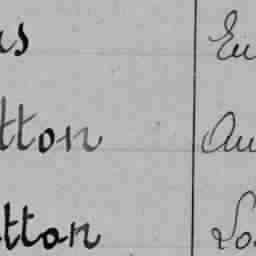 us Eu
tton Au
tton Lo